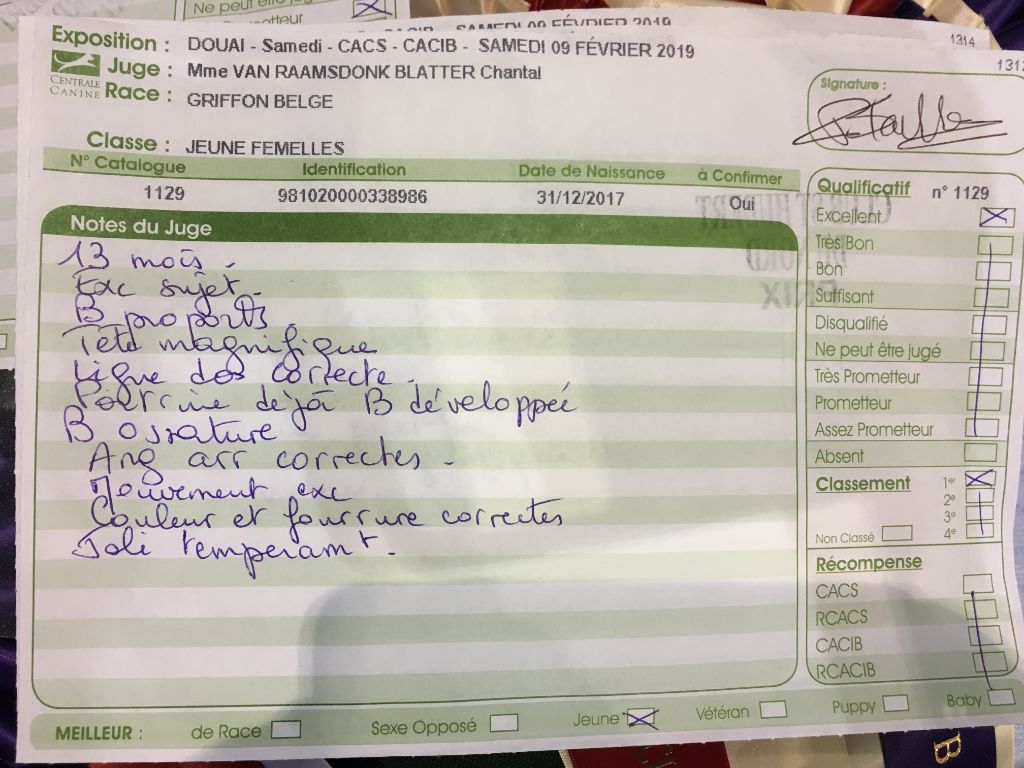 Ne peut être
CACIB - SAMEDI 09 FÉVRIER 2019
1314
1312
Exposition : DOUAI - Samedi - CACS - CACIB - SAMEDI 09 FÉVRIER 2019
CENTRALE CANINE
Juge : Mme VAN RAAMSDONK BLATTER Chantal
Race : GRIFFON BELGE
Classe : JEUNE FEMELLES
Signature :
N° Catalogue Identification Date de Naissance à Confirmer
1129 981020000338986 31/12/2017 Oui
Notes du Juge
13 mois.
Exc sujet.
B proports
Tête magnifique
Ligne dos correcte.
Poitrine déjà B développée
B ossature
Ang arr correctes -
Mouvement exc
Couleur et fourrure correctes
Joli temperamt.
Qualificatif n° 1129
Excellent
Très Bon
Bon
Suffisant
Disqualifié
Ne peut être jugé
Très Prometteur
Prometteur
Assez Prometteur
Absent
Classement 1er
2e
3e
Non Classé 4e
Récompense
CACS
RCACS
CACIB
RCACIB
MEILLEUR : de Race Sexe Opposé Jeune Vétéran Puppy Baby